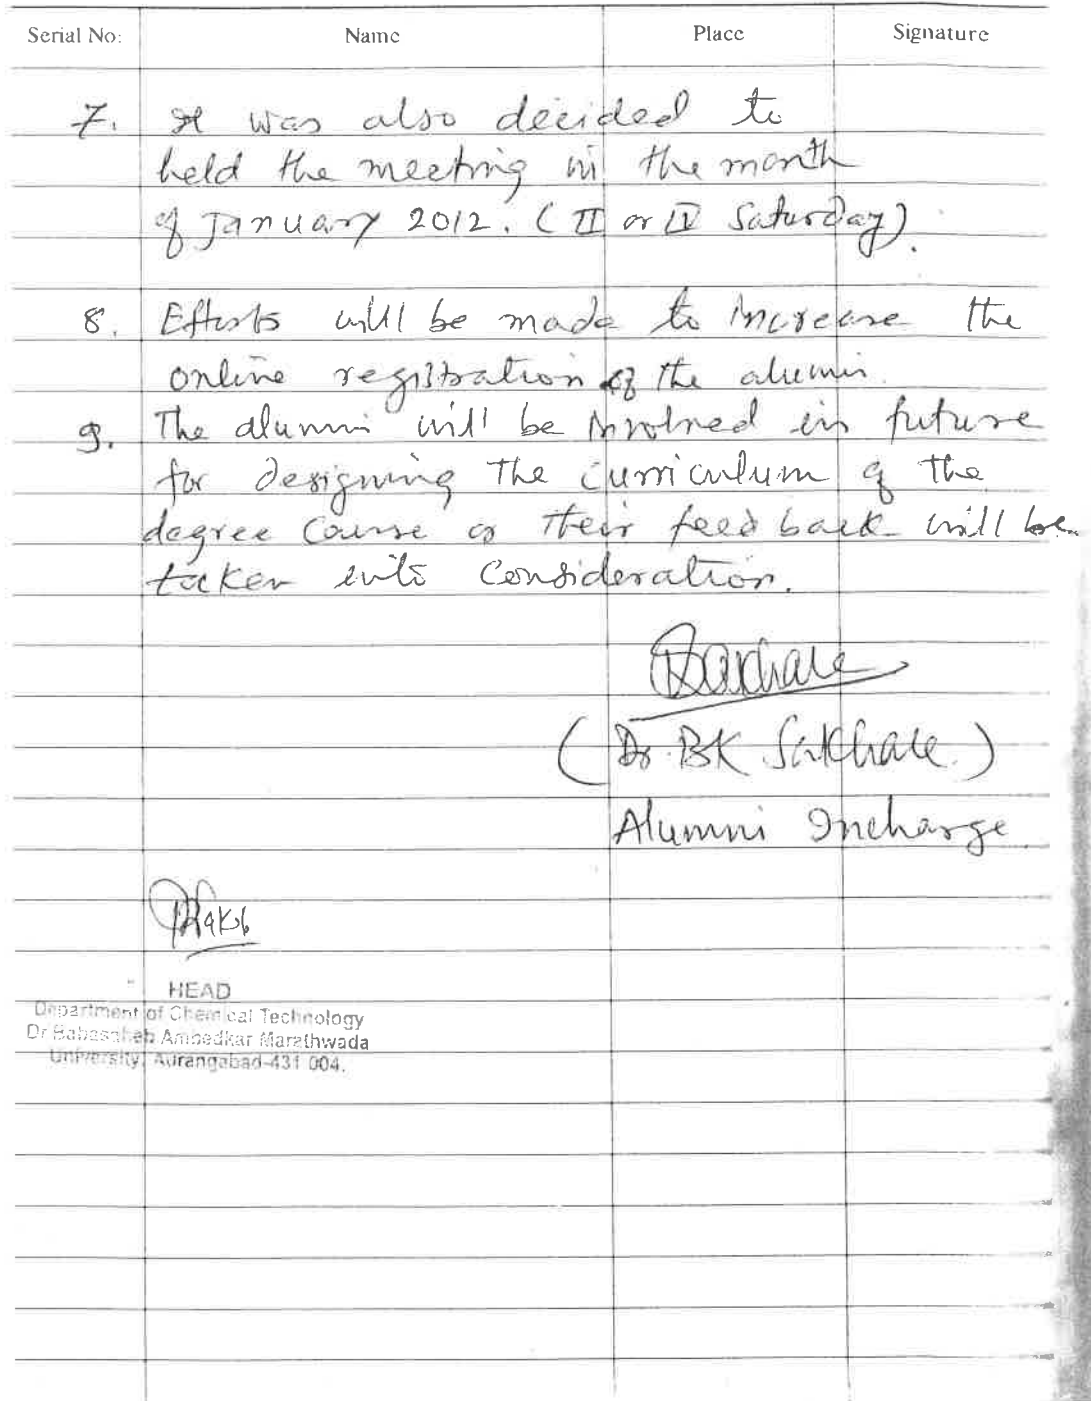 Serial No: Name Place Signature
7. It was also decided to
held the meeting in the month
of January 2012. (II or IV Saturday).
8. Efforts will be made to increase the
online registration of the alumni.
9. The alumni will be involved in future
for designing the curriculum of the
degree course or their feed back will be
taken into consideration.
Sakhale
(Dr. BK Sakhale)
Alumni Incharge
HEAD
Department of Chemical Technology
Dr Babasaheb Ambedkar Marathwada
University, Aurangabad-431 004.